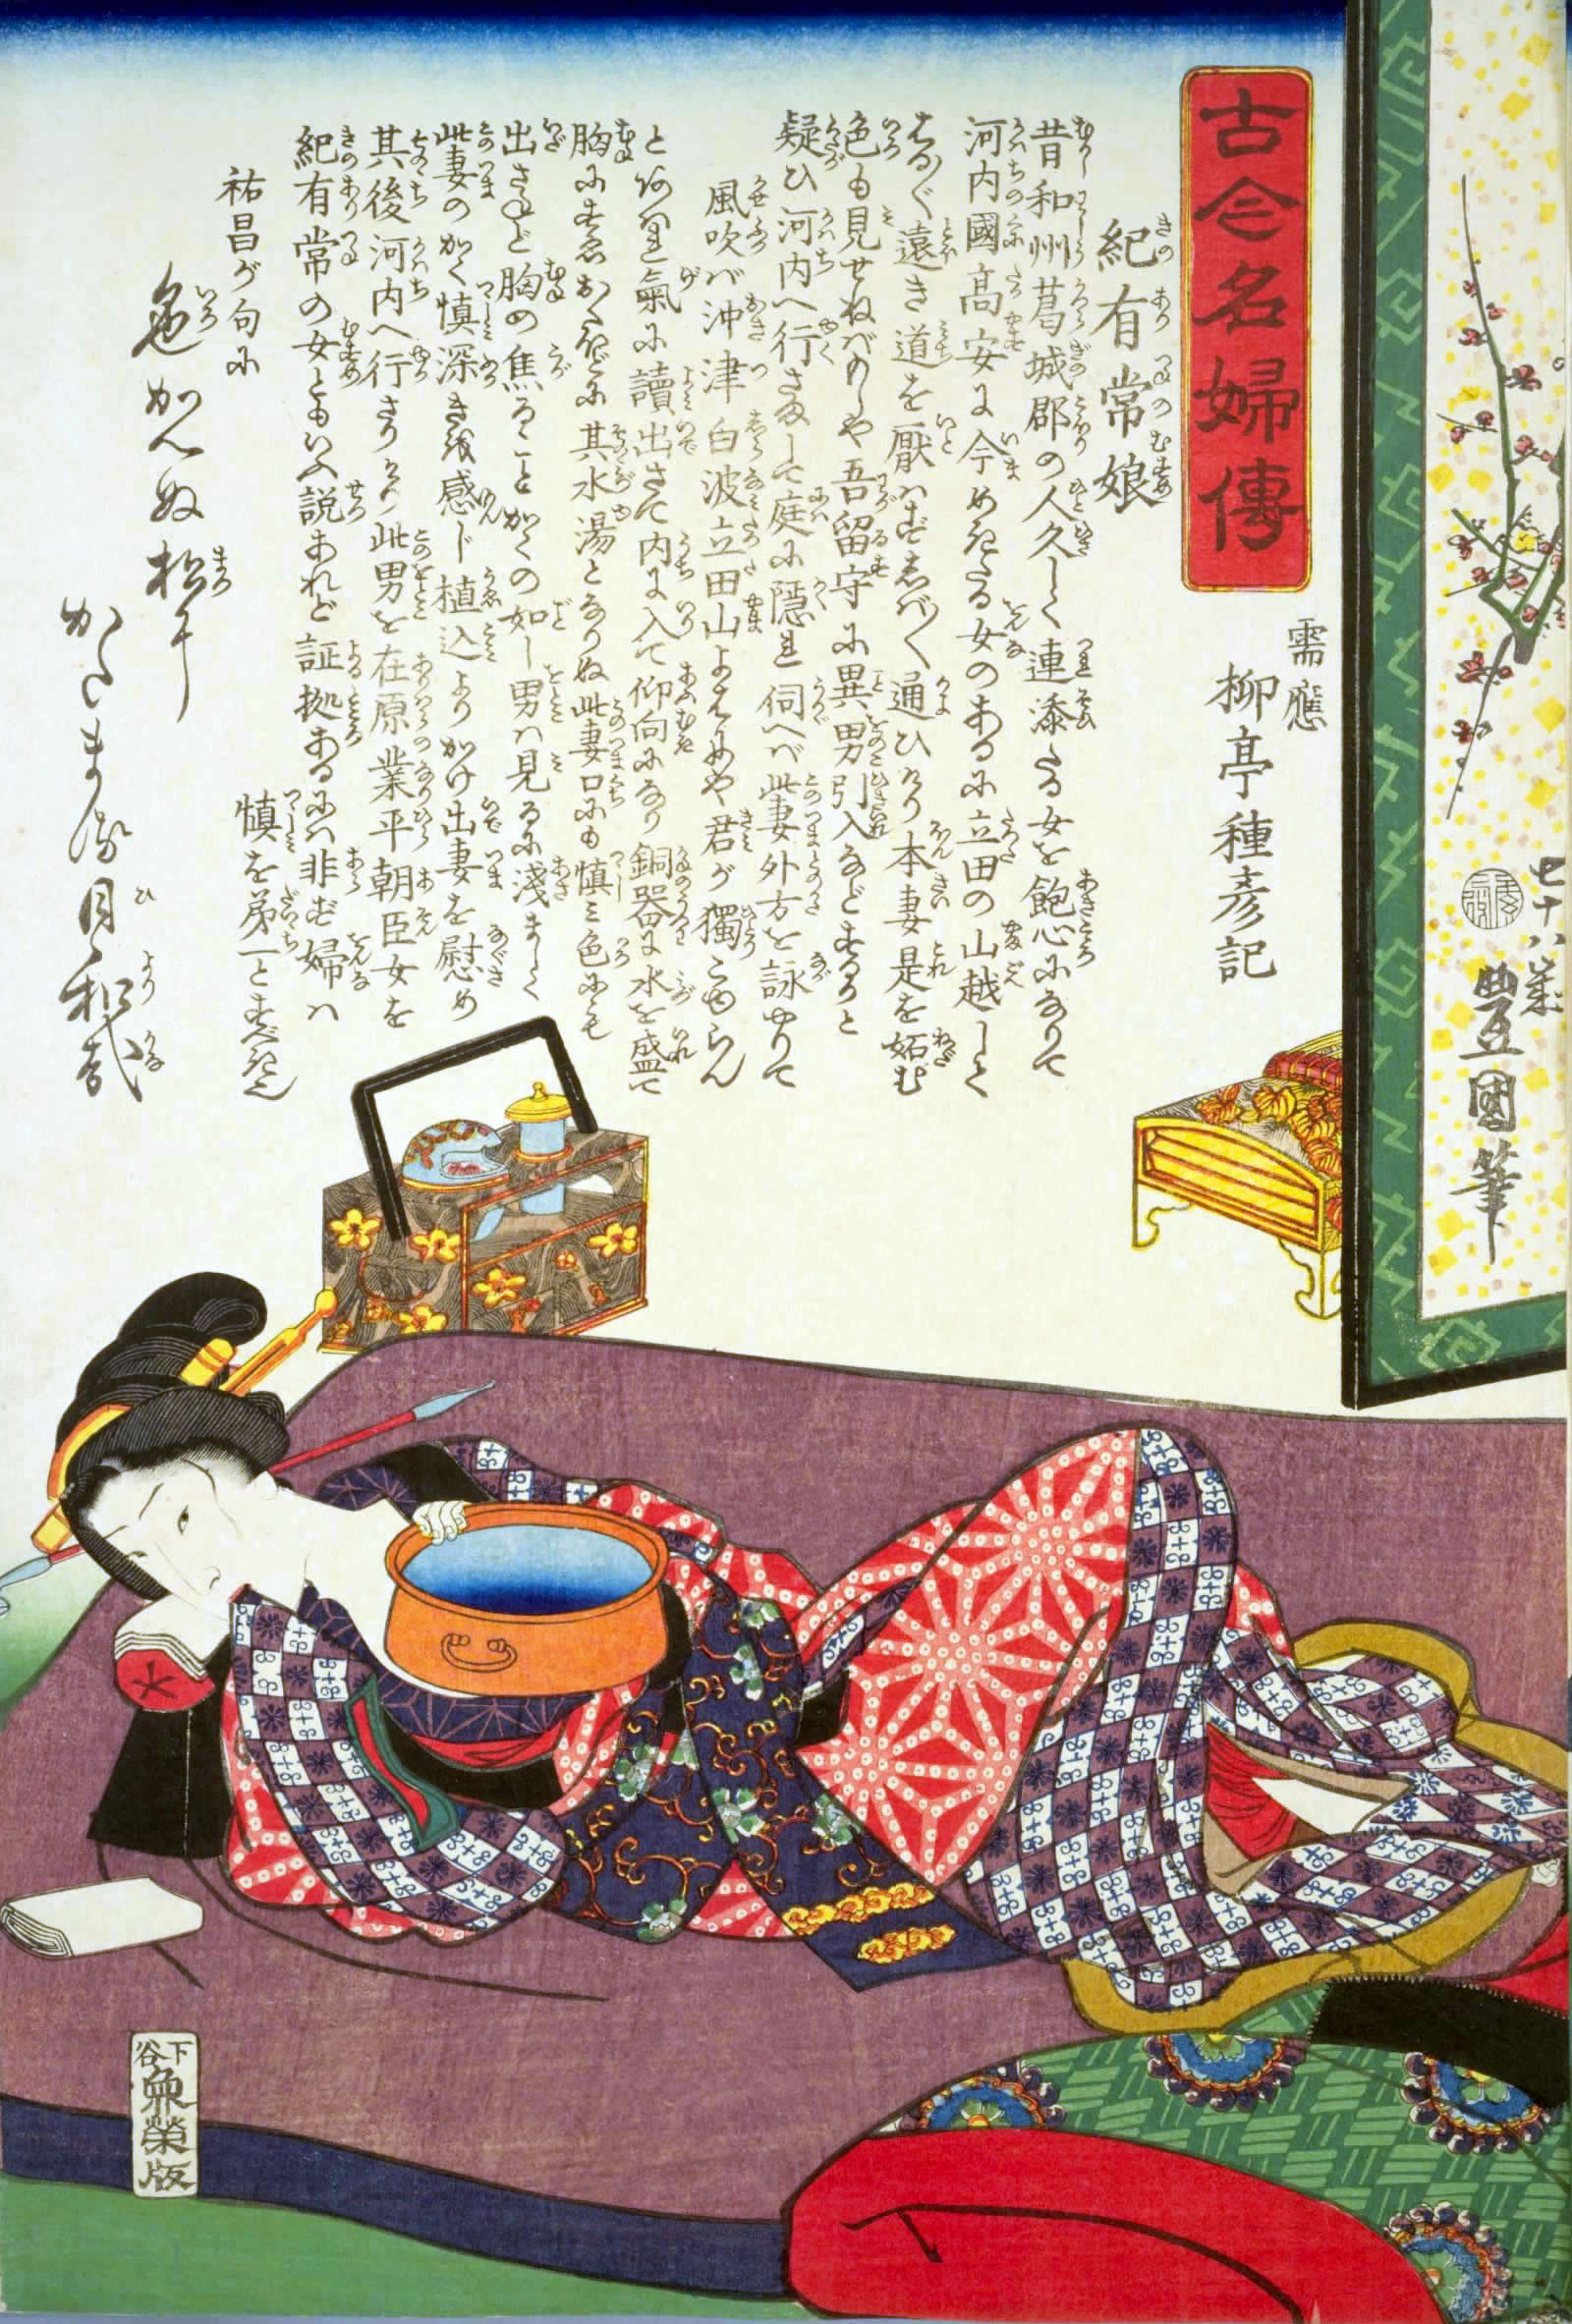 古今名婦傳
紀有常娘
需應
柳亭種彦記
昔和州葛城郡の人久しく連添たる女を飽心になりて
河内國高安に今めきたる女のあるに立田の山越して
はるく遠き道を厭はずしばく通ひけり本妻是を妬む
色も見せねばもしや吾留守に異男引入などするかと
疑ひ河内へ行さまして庭に隠れ伺へば此妻外方を詠やりて
風吹ば沖津白波立田山よはにや君が獨こゆらん
讀出さて内に入て仰向になり銅器に水を盛て
其水湯となりぬ此妻口にも慎み色にも
出さねど胸の焦ること かくの如し男ハ見るに淺ましく
此妻のかく慎深きを感じ植込よりかけ出妻を慰め
其後河内へ行ざりけり此男を在原業平朝臣女を
紀有常の女ともいふ説あれど証拠あるにハ非ず婦ハ
慎を第一とすべきなり
祐昌が句に
色かへぬ松や
かたまる日和哉
七十八歳
豊國筆
下谷
魚榮版